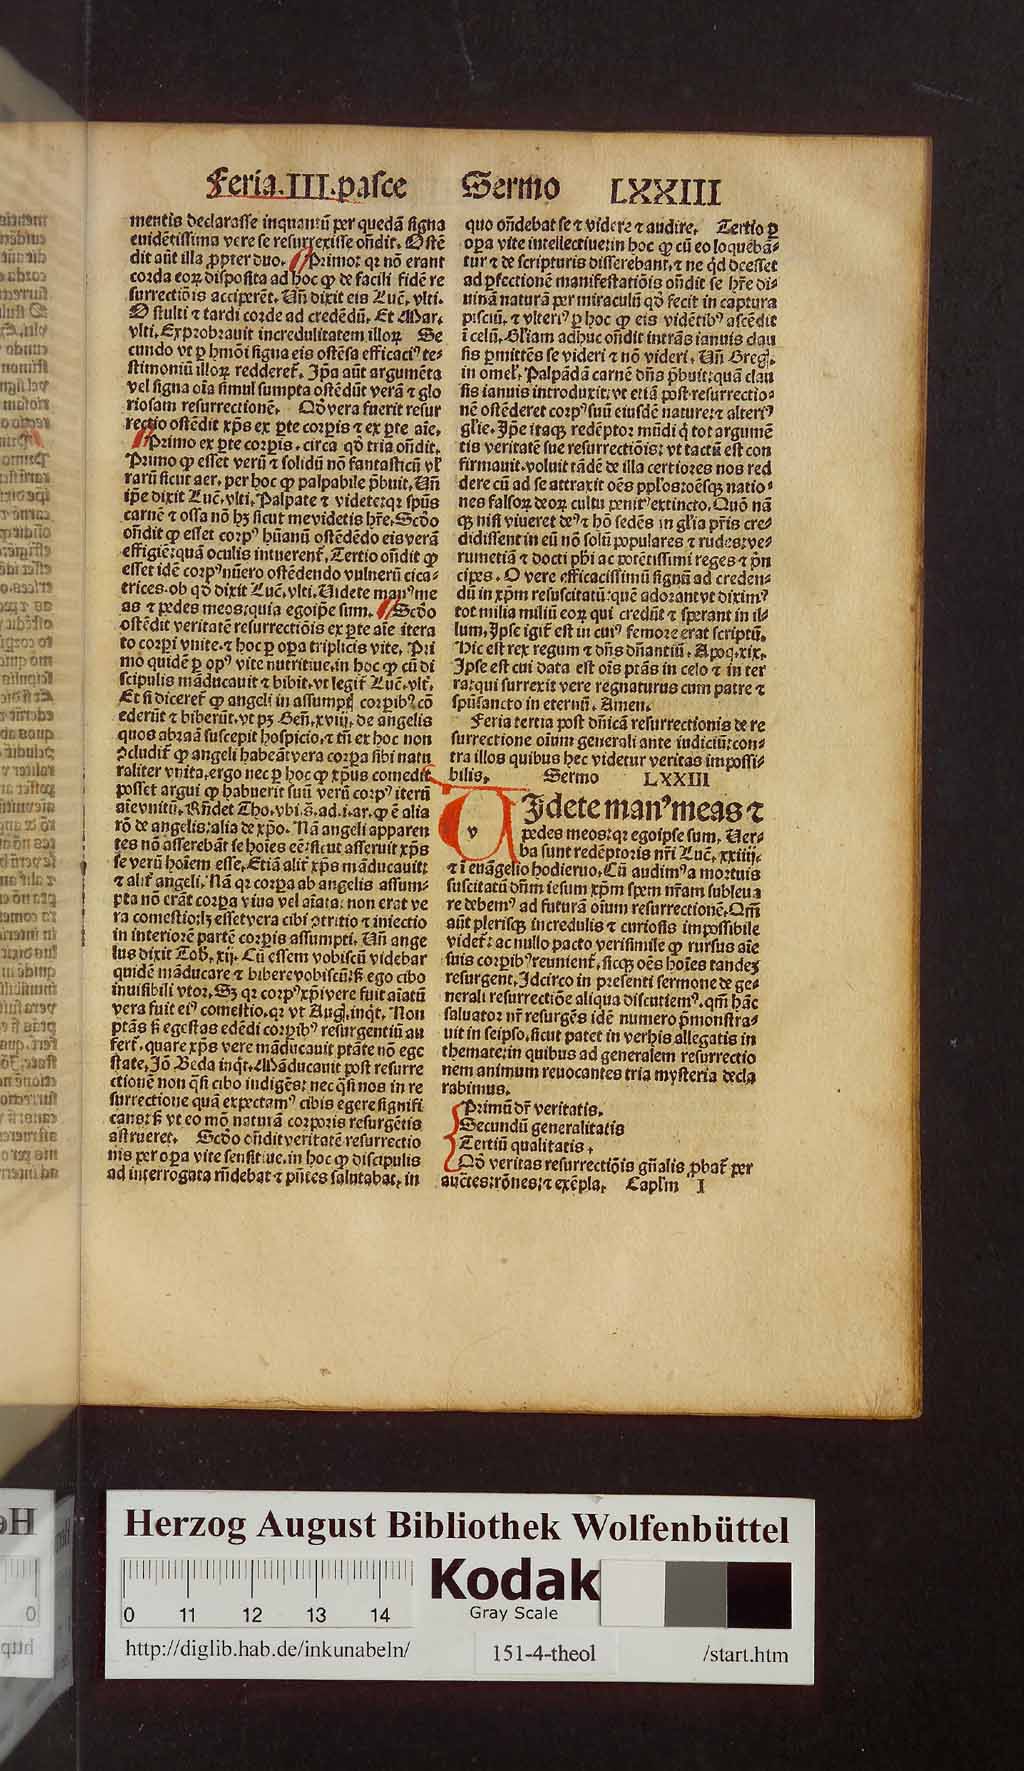 Feria.III.pasce Sermo LXXIII
mentis declarasse inquantũ per quedã signa
euidẽtissima vere se resurrexisse oñdit. Ostẽ
dit aũt illa ꝓpter duo. Primo: qꝛ nõ erant
corda eoꝝ disposita ad hoc ꝙ de facili fidẽ re
surrectiõis acciperẽt. Uñ dixit eis Lucẽ. vlti.
O stulti ⁊ tardi corde ad credẽdũ. Et Mar.
vlti. Exprobrauit incredulitatem illoꝝ Se
cundo vt ꝑ hmõi signa eis ostẽsa efficaciꝰ te⸗
stimoniũ illoꝝ redderet᷑. Ip̃a aũt argumẽta
vel signa oĩa simul sumpta ostẽdũt verã ⁊ glo
riosam resurrectionẽ. Qð vera fuerit resur
rectio ostẽdit xp̃s ex ꝑte corꝑis ⁊ ex ꝑte aĩe.
Primo ex ꝑte corꝑis. circa qð tria oñdit.
Primo ꝙ esset verũ ⁊ solidũ nõ fantasticũ vľ
rarũ sicut aer. per hoc ꝙ palpabile p̃buit. Uñ
ip̃e dixit Lucẽ. vlti. Palpate ⁊ videte: qꝛ sp̃us
carnẽ ⁊ ossa nõ hꝫ sicut me videtis hr̃e. Scðo
oñdit ꝙ esset corpꝰ hũanũ ostẽdẽdo eis verã
effigiẽ: quã oculis intuerent᷑. Tertio oñdit ꝙ
esset idẽ corpꝰ nũero ostẽdendo vulnerũ cica⸗
trices. ob qð dixit Lucẽ. vlti. Uidete manꝰ me
as ⁊ pedes meos: quia ego ip̃e sum. Scðo
ostẽdit veritatẽ resurrectiõis ex ꝑte aĩe itera
to corpi vnite. ⁊ hoc ꝑ oꝑa triplicis vite. Pri
mo quidẽ ꝑ opꝰ vite nutritiue. in hoc ꝙ cũ di
scipulis mãducauit ⁊ bibit. vt legit᷑ Lucẽ. vlt̃.
Et si diceret᷑ ꝙ angeli in assumptꝭ corꝑibꝰ cõ
ederũt ⁊ biberũt. vt pꝫ Geñ. xviij. de angelis
quos abraã suscepit hospicio. ⁊ tñ ex hoc non
ↄcludit᷑ ꝙ angeli habeãt vera corꝑa sibi natu
raliter vnita. ergo nec ꝑ hoc ꝙ xp̃us comedit
posset argui ꝙ habuerit suũ verũ corpꝰ iterũ
aĩe vnitũ. Rñdet Tho. vbi.s̃. ad.i.ar. ꝙ ẽ alia
rõ de angelis: alia de xp̃o. Nã angeli apparen
tes nõ asserebãt se hoĩes eẽ: sicut asseruit xp̃s
se verũ hoĩem esse. Etiã alit᷑ xp̃s mãducauit:
⁊ alit᷑ angeli. Nã qꝛ corꝑa ab angelis assum⸗
pta nõ erãt corꝑa viua vel aĩata: non erat ve
ra comestio: lꝫ esset vera cibi ↄtritio ⁊ iniectio
in interiorẽ partẽ corꝑis assumpti. Uñ ange
lus dixit Tob. xij. Cũ essem vobiscũ videbar
quidẽ mãducare ⁊ bibere vobiscũ: sꝫ ego cibo
inuisibili vtor. Sꝫ qꝛ corpꝰ xp̃i vere fuit aĩatũ
vera fuit eiꝰ comestio. qꝛ vt Augꝭ. inqt̃. Non
ptãs sꝫ egestas edẽdi corꝑibꝰ resurgentiũ au
fert᷑. quare xp̃s vere mãducauit ptãte nõ ege
state. Iõ Beda inqt̃. Mãducauit post resurre
ctionẽ non q̃si cibo indigẽs: nec q̃si nos in re
surrectione quã expectamꝰ cibis egere signifi
cans: sꝫ vt eo mõ naturã corporis resurgẽtis
astrueret. Scðo oñdit veritatẽ resurrectio
nis per oꝑa vite sensitiue. in hoc ꝙ discipulis
ad interrogata rñdebat ⁊ pñtes salutabat. in
quo oñdebat se ⁊ videre ⁊ audire. Tertio ꝑ
oꝑa vite intellectiue: in hoc ꝙ cũ eo loquebã⸗
tur ⁊ de scripturis disserebant. ⁊ ne qd̃ deesset
ad ꝑfectionẽ manifestatiõis oñdit se hr̃e di⸗
uinã naturã per miraculũ qð fecit in captura
pisciũ. ⁊ vlteriꝰ ꝑ hoc ꝙ eis vidẽtibꝰ ascẽdit
ĩ celũ. Gľiam adhuc oñdit intrãs ianuis clau
sis ꝑmittẽs se videri ⁊ nõ videri. Uñ Gregꝭ.
in omeľ. Palpãdã carnẽ dñs p̃buit: quã clau
sis ianuis introduxit: vt etiã post resurrectio⸗
nẽ ostẽderet corpꝰ suũ eiusdẽ nature: ⁊ alteriꝰ
gľie. Ip̃e itaqꝫ redẽptor mũdi q̇ tot argumẽ
tis veritatẽ sue resurrectiõis: vt tactũ est con
firmauit. voluit tãdẽ de illa certiores nos red
dere cũ ad se attraxit oẽs pplos: oẽsqꝫ natio⸗
nes falsoꝝ deoꝝ cultu penitꝰ extincto. Quõ nã
qꝫ nisi viueret deꝰ ⁊ hõ sedẽs in gľia pr̃is cre⸗
didissent in eũ nõ solũ populares ⁊ rudes: ve⸗
rumetiã ⁊ docti phi ac potẽtissimi reges ⁊ p̃n
cipes. O vere efficacissimũ signũ ad creden⸗
dũ in xp̃m resuscitatũ: quẽ adorant vt diximꝰ
tot milia miliũ eoꝝ qui credũt ⁊ sperant in il⸗
lum. Ipse igit᷑ est in cuiꝰ femore erat scriptũ.
Hic est rex regum ⁊ dñs dñantiũ. Apoꝗ. xix.
Ipse est cui data est oĩs ptãs in celo ⁊ in ter
ra: qui surrexit vere regnaturus cum patre ⁊
spũsancto in eternũ. Amen.
Feria tertia post dñicã resurrectionis de re
surrectione oĩum generali ante iudiciũ: con⸗
tra illos quibus hec videtur veritas impossi⸗
bilis. Sermo LXXIII
v
UIdete manꝰ meas ⁊
pedes meos: qꝛ ego ipse sum. Uer⸗
ba sunt redẽptoris nr̃i Lucẽ. xxiiij.
⁊ ĩ euãgelio hodierno. Cũ audimꝰ a mortuis
suscitatũ dñm iesum xp̃m spem nr̃am subleua
re debemꝰ ad futurã oĩum resurrectionẽ. Qm̃
aũt plerisqꝫ incredulis ⁊ curiosis impossibile
videt᷑: ac nullo pacto verisimile ꝙ rursus aĩe
suis corꝑibꝰ reunient᷑. sicqꝫ oẽs hoĩes tandeꝫ
resurgent. Idcirco in presenti sermone de ge⸗
nerali resurrectiõe aliqua discutiemꝰ. qm̃ hãc
saluator nr̃ resurgẽs idẽ numero p̃monstra⸗
uit in seipso. sicut patet in verbis allegatis in
themate: in quibus ad generalem resurrectio
nem animum reuocantes tria mysteria decla
rabimus.
Primũ dr̃ veritatis.
Secundũ generalitatis
Tertiũ qualitatis.
Qð veritas resurrectiõis gñalis ꝓbat᷑ per
auctes: rõnes: ⁊ exẽpla. Capľm I
Herzog August Bibliothek Wolfenbüttel
0 11 12 13 14
Kodak
Gray Scale
http://diglib.hab.de/inkunabeln/ 151-4-theol /start.htm